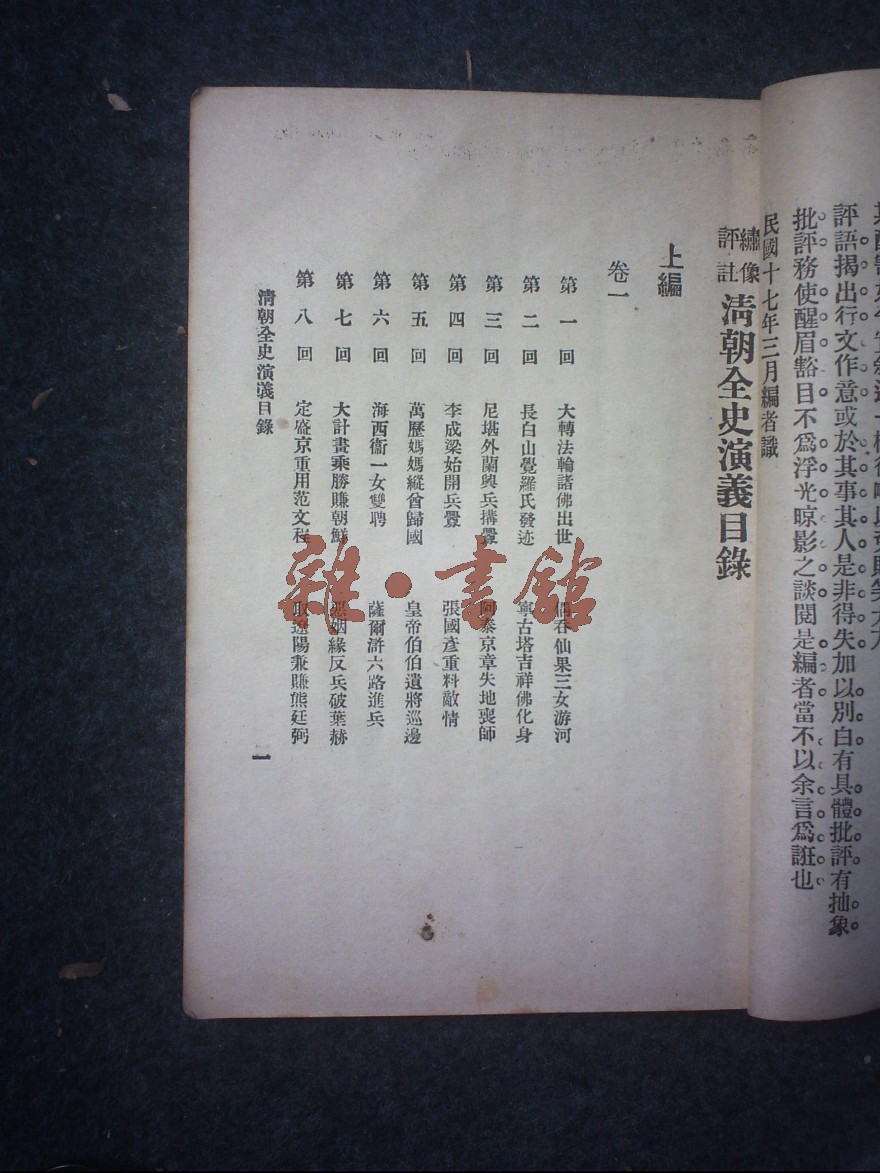 評語揭出行文作意或於其事其人是非得失加以別白有具體批評有抽象
批評務使醒眉豁目不爲浮光晾影之談閱是編者當不以余言爲誑也
民國十七年三月編者識
繡像
評註
清朝全史演義目錄
上編
卷一
第一回 大轉法輪諸佛出世 吞仙果三女游河
第二回 長白山覺羅氏發迹 寧古塔吉祥佛化身
第三回 尼堪外蘭興兵搆釁 阿泰京章失地喪師
第四回 李成梁始開兵釁 張國彥重料敵情
第五回 萬歷媽媽縱酋歸國 皇帝伯伯遣將巡邊
第六回 海西衞一女雙聘 薩爾滸六路進兵
第七回 大計畫乘勝賺朝鮮 姻緣反兵破葉赫
第八回 定盛京重用范文程 取遼陽兼賺熊廷弼
清朝全史演義目錄
一
雜·書館